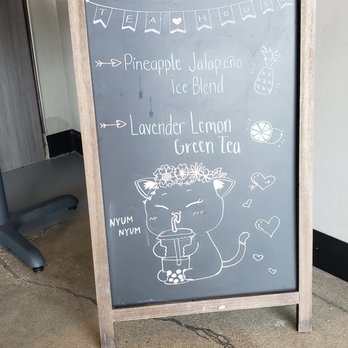 TEA HOUSE
Pineapple Jalapeño
Ice Blend
Lavender Lemon
Green Tea
NYUM
NYUM